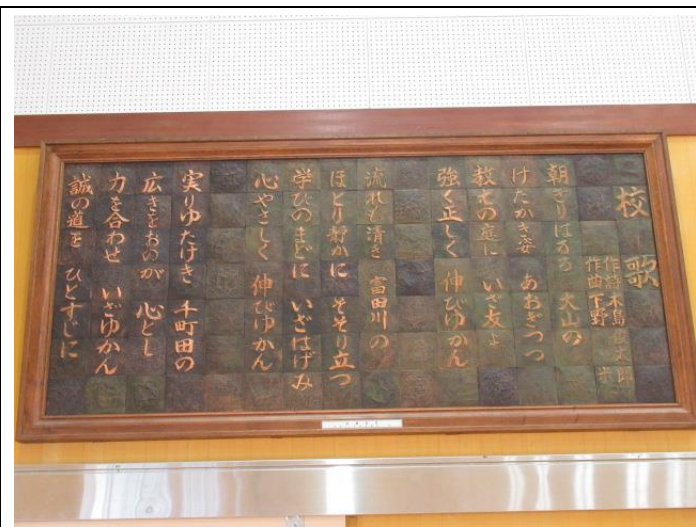 校歌
作詩 木島
作曲 下野
朝ぎりはるる 大山の
けたかき姿 あおぎつつ
教その庭に いざ友よ
強く正しく 伸びゆかん
流れも清き 富田川の
ほとり静かに そそり立つ
学びのまどに いざはげみ
心やさしく 伸びゆかん
実りゆたけき 千町田の
広きをおのが 心どし
力を合わせ いざゆかん
誠の道を ひとすじに